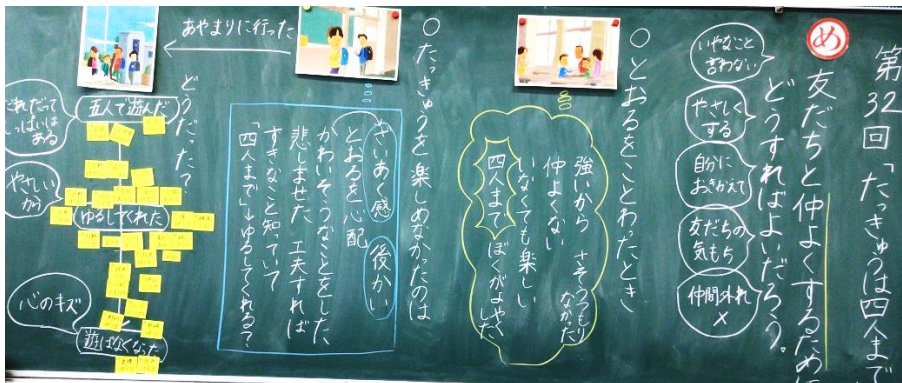 第32回「たっきゅうは四人まで
め
友だちと仲よくするために
どうすればよいだろう。
いやなこと
言わない
やさしく
する
自分に
おきかえて
友だちの
気もち
仲間外れ
×
○とおるをことわったとき
強いから さそうつもり
なかった
仲よくない
いなくても楽しい
四人まで ぼくがよやく
した
○たっきゅうを楽しめなかったのは
ざいあく感 後かい
とおるを心配
かわいそうなことをした
悲しませた 工夫すれば
すきなこと知っていて
「四人まで」→ゆるしてくれる?
あやまりに行った
どうだった?
五人で遊んだ
ゆるしてくれた
遊ばなくなった
だれだって
しっぱいは
ある
やさしい
から
心のキズ